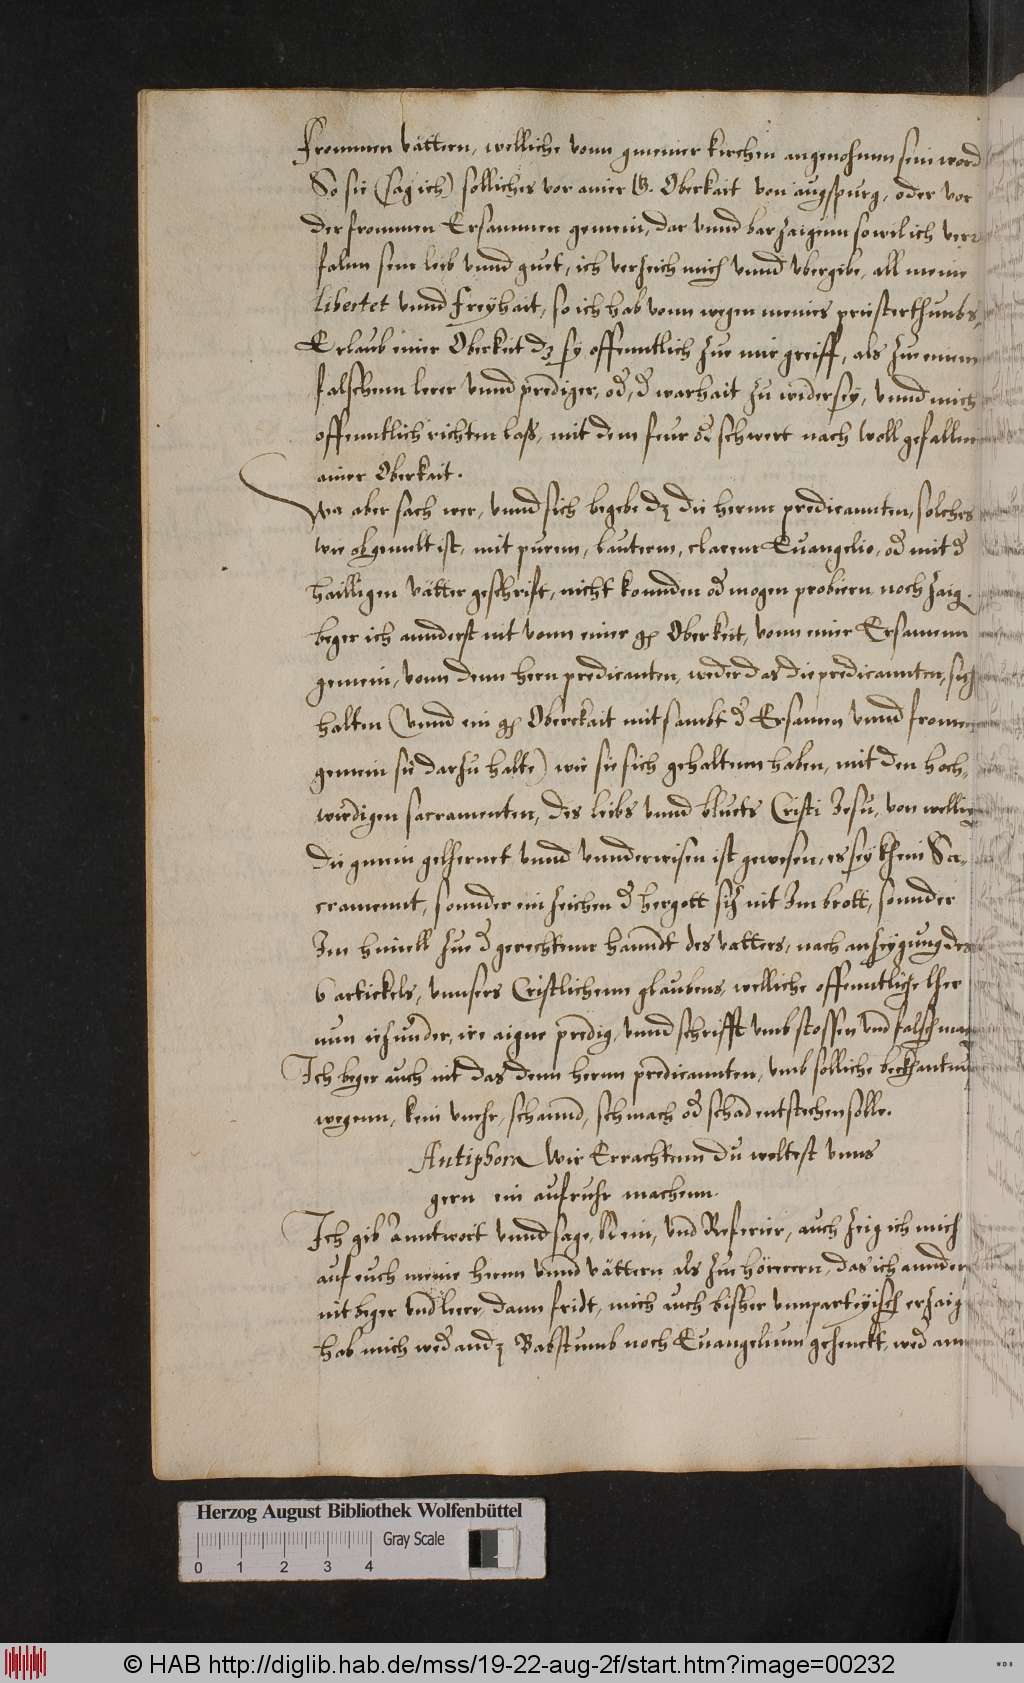 frommen vättern, welliche vonn gmeiner kirchen angenohmen sein word
So sie (sag ich) solliches vor ainer G. Oberkait von augspurg, oder vor
der frommen Ersammen gemein, dar vnnd bar zaigenn so wil ich ver
falnn sein leib vnnd guet, ich verzeich mich vnnd vbergibe, all meine
libertet vnnd freÿhait, so ich hab vonn wegen meines priesterthumbs,
Erlaub einer Oberkeit dz sÿ offenntlich zue mir greiff, als zue einem
falschenn lerer vnnd prediger, od, d warhait zu widerseÿ, vnnd mich
offenntlich richten lass, mit dem feur od schwert nach woll gefallen
ainer Oberkait.
Wa aber sach wer, vnnd sich begebe dz die herrnn predicannten, solches
wie obgemelt ist, mit purem, lautterm, clarem Euangelio, od mit d
hailligen vätter geschrift, nicht konnden od mogen probiern noch zaig.
beger ich annderst nit vonn einer g. Oberkeit, vonn einer Ersamenn
gemein, vonn denn hern predicanten, weder das die predicannten, sich
halten (vnnd ein g. Oberckait mit sambt d Ersamen vnnd fromen
gemein sie darzu halte) wie sie sich gehaltenn haben, mit den hoch,
wirdigen sacramenten, des leibs vnnd bluets Cristi Jesu, von wellic
die gmein gelhernet vnnd vnnderwisen ist gewesen, es seÿ khein Sa,
crament, sonnder ein zeichen d hergott sitz nit Im brott, sonnder
Im himell zue d gerechtenn hanndt des vatters, nach anzeÿgung des
6 artickels, vnnsers Cristlichenn glaubens, welliche offenntliche lher
nun iezunder, ire aigne predig, vnnd schrifft vmbstossen vnd falsch mac
Ich beger auch nit das denn hernn predicannten, vmb solliche beckhantnu
wegenn, kein vnehr, schannd, schmach od schad entstehen solle.
Antiphora Wir Errachtenn du woltest vnns
gern ein aufruhr machenn.
Ich gib Anntwort vnnd sage, Nein, vnd Referier, auch zeig ich mich
auf euch meine herrn vnnd vättern als zue hörerern, das ich annder
nit beger vnd lerer, dann fridt, mich auch bisher vnnparteÿisch erzaig
hab mich wed an dz Babstumb noch Euangelium gehenckt, wed am
Herzog August Bibliothek Wolfenbüttel
Gray Scale
0 1 2 3 4
© HAB http://diglib.hab.de/mss/19-22-aug-2f/start.htm?image=00232